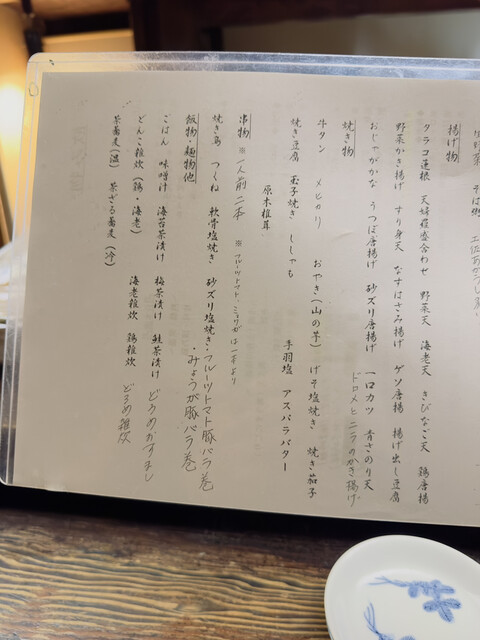 揚げ物
タラコ蓮根 天婦羅盛合わせ 野菜天 海老天 きびなご天 鶏唐揚
野菜かき揚げ すり身天 なすはさみ揚げ ゲソ唐揚 揚げ出し豆腐
おじゃがかな うつぼ唐揚げ 砂ズリ唐揚げ 一口カツ 青さのり天
ドロメとニラのかき揚げ
焼き物
牛タン メヒカリ おやき(山の芋) げそ塩焼き 焼き茄子
焼き豆腐 玉子焼き ししゃも 手羽塩 アスパラバター
原木椎茸
串物 ※一人前二本 ※フルーツトマト・ミョウガは一本より
焼き鳥 つくね 軟骨塩焼き 砂ズリ塩焼き・フルーツトマト豚バラ巻
・みょうが豚バラ巻
飯物・麺物他
ごはん 味噌汁 海苔茶漬け 梅茶漬け 鮭茶漬け どろめかすまし
どんこ雑炊(鶏・海老) 海老雑炊 鶏雑炊 どろめ雑炊
茶蕎麦(温) 茶ざる蕎麦(冷)